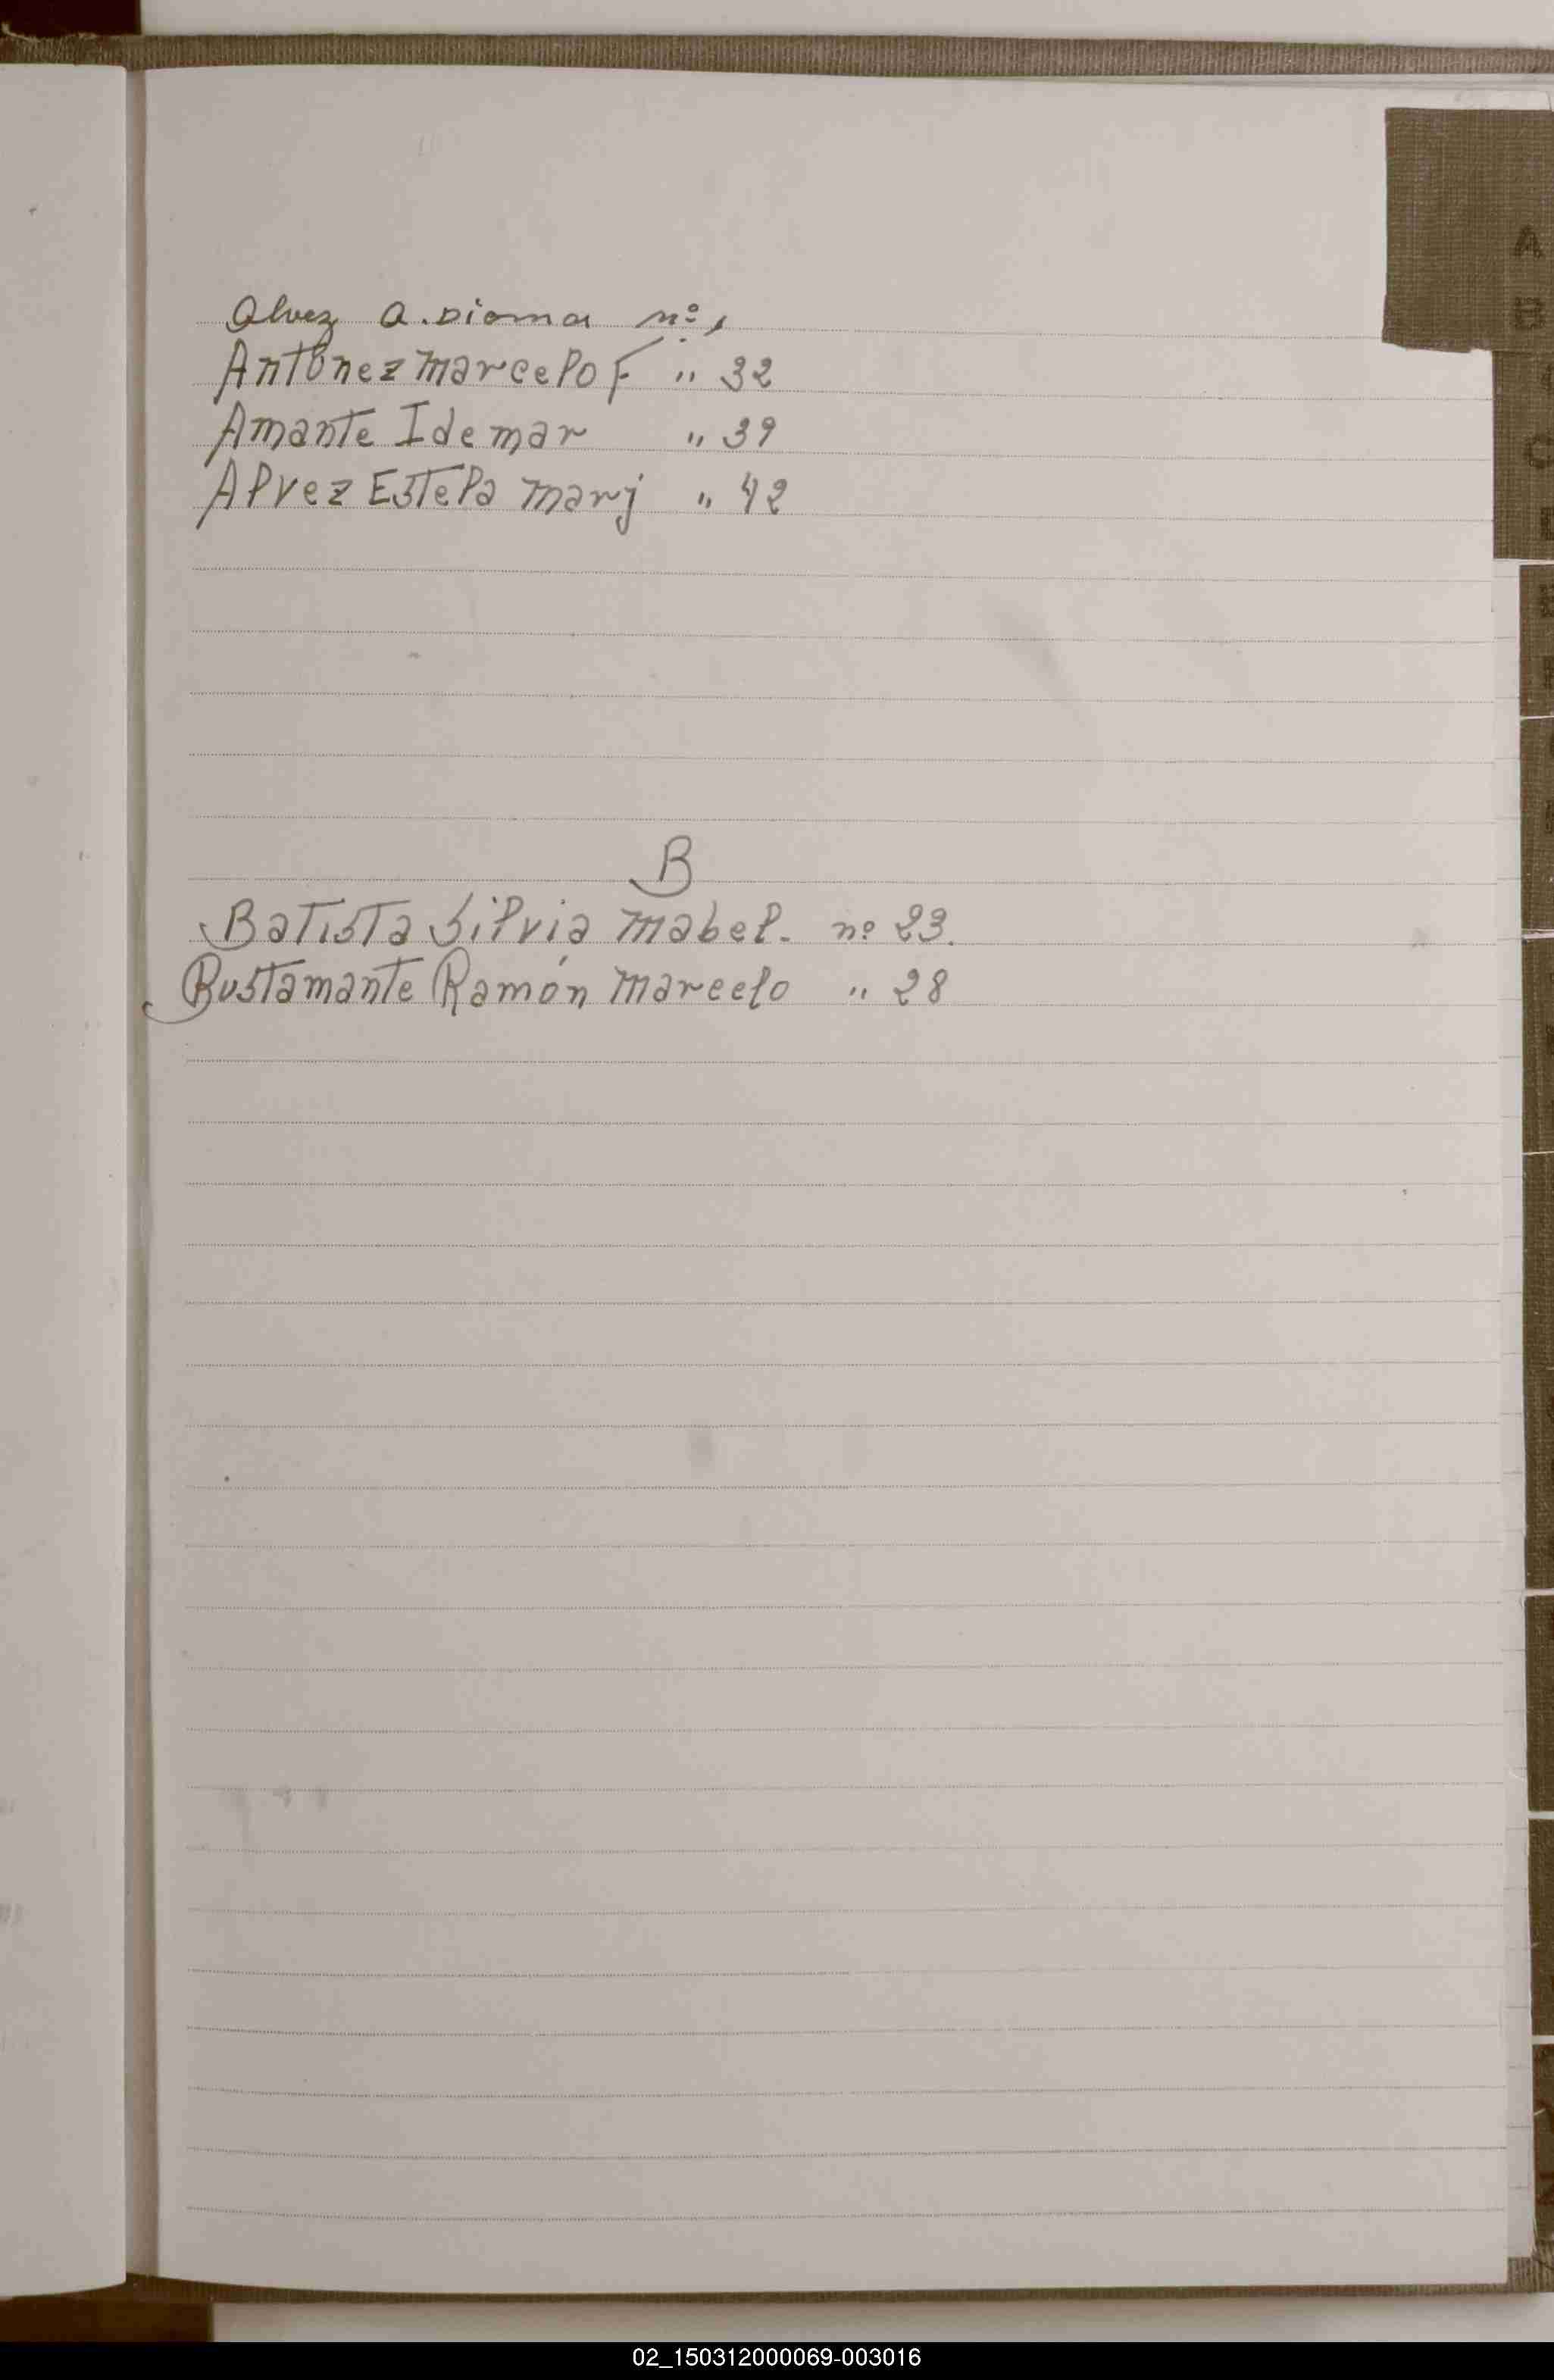 A
B
C
Alvez A. Dioma nº 1
Antúnez Marcelo F " 32
Amante Idemar " 39
Alvez Estela Marj " 42
B
Batista Silvia Mabel. nº 23.
Bustamante Ramón Marcelo " 28
02_150312000069-003016